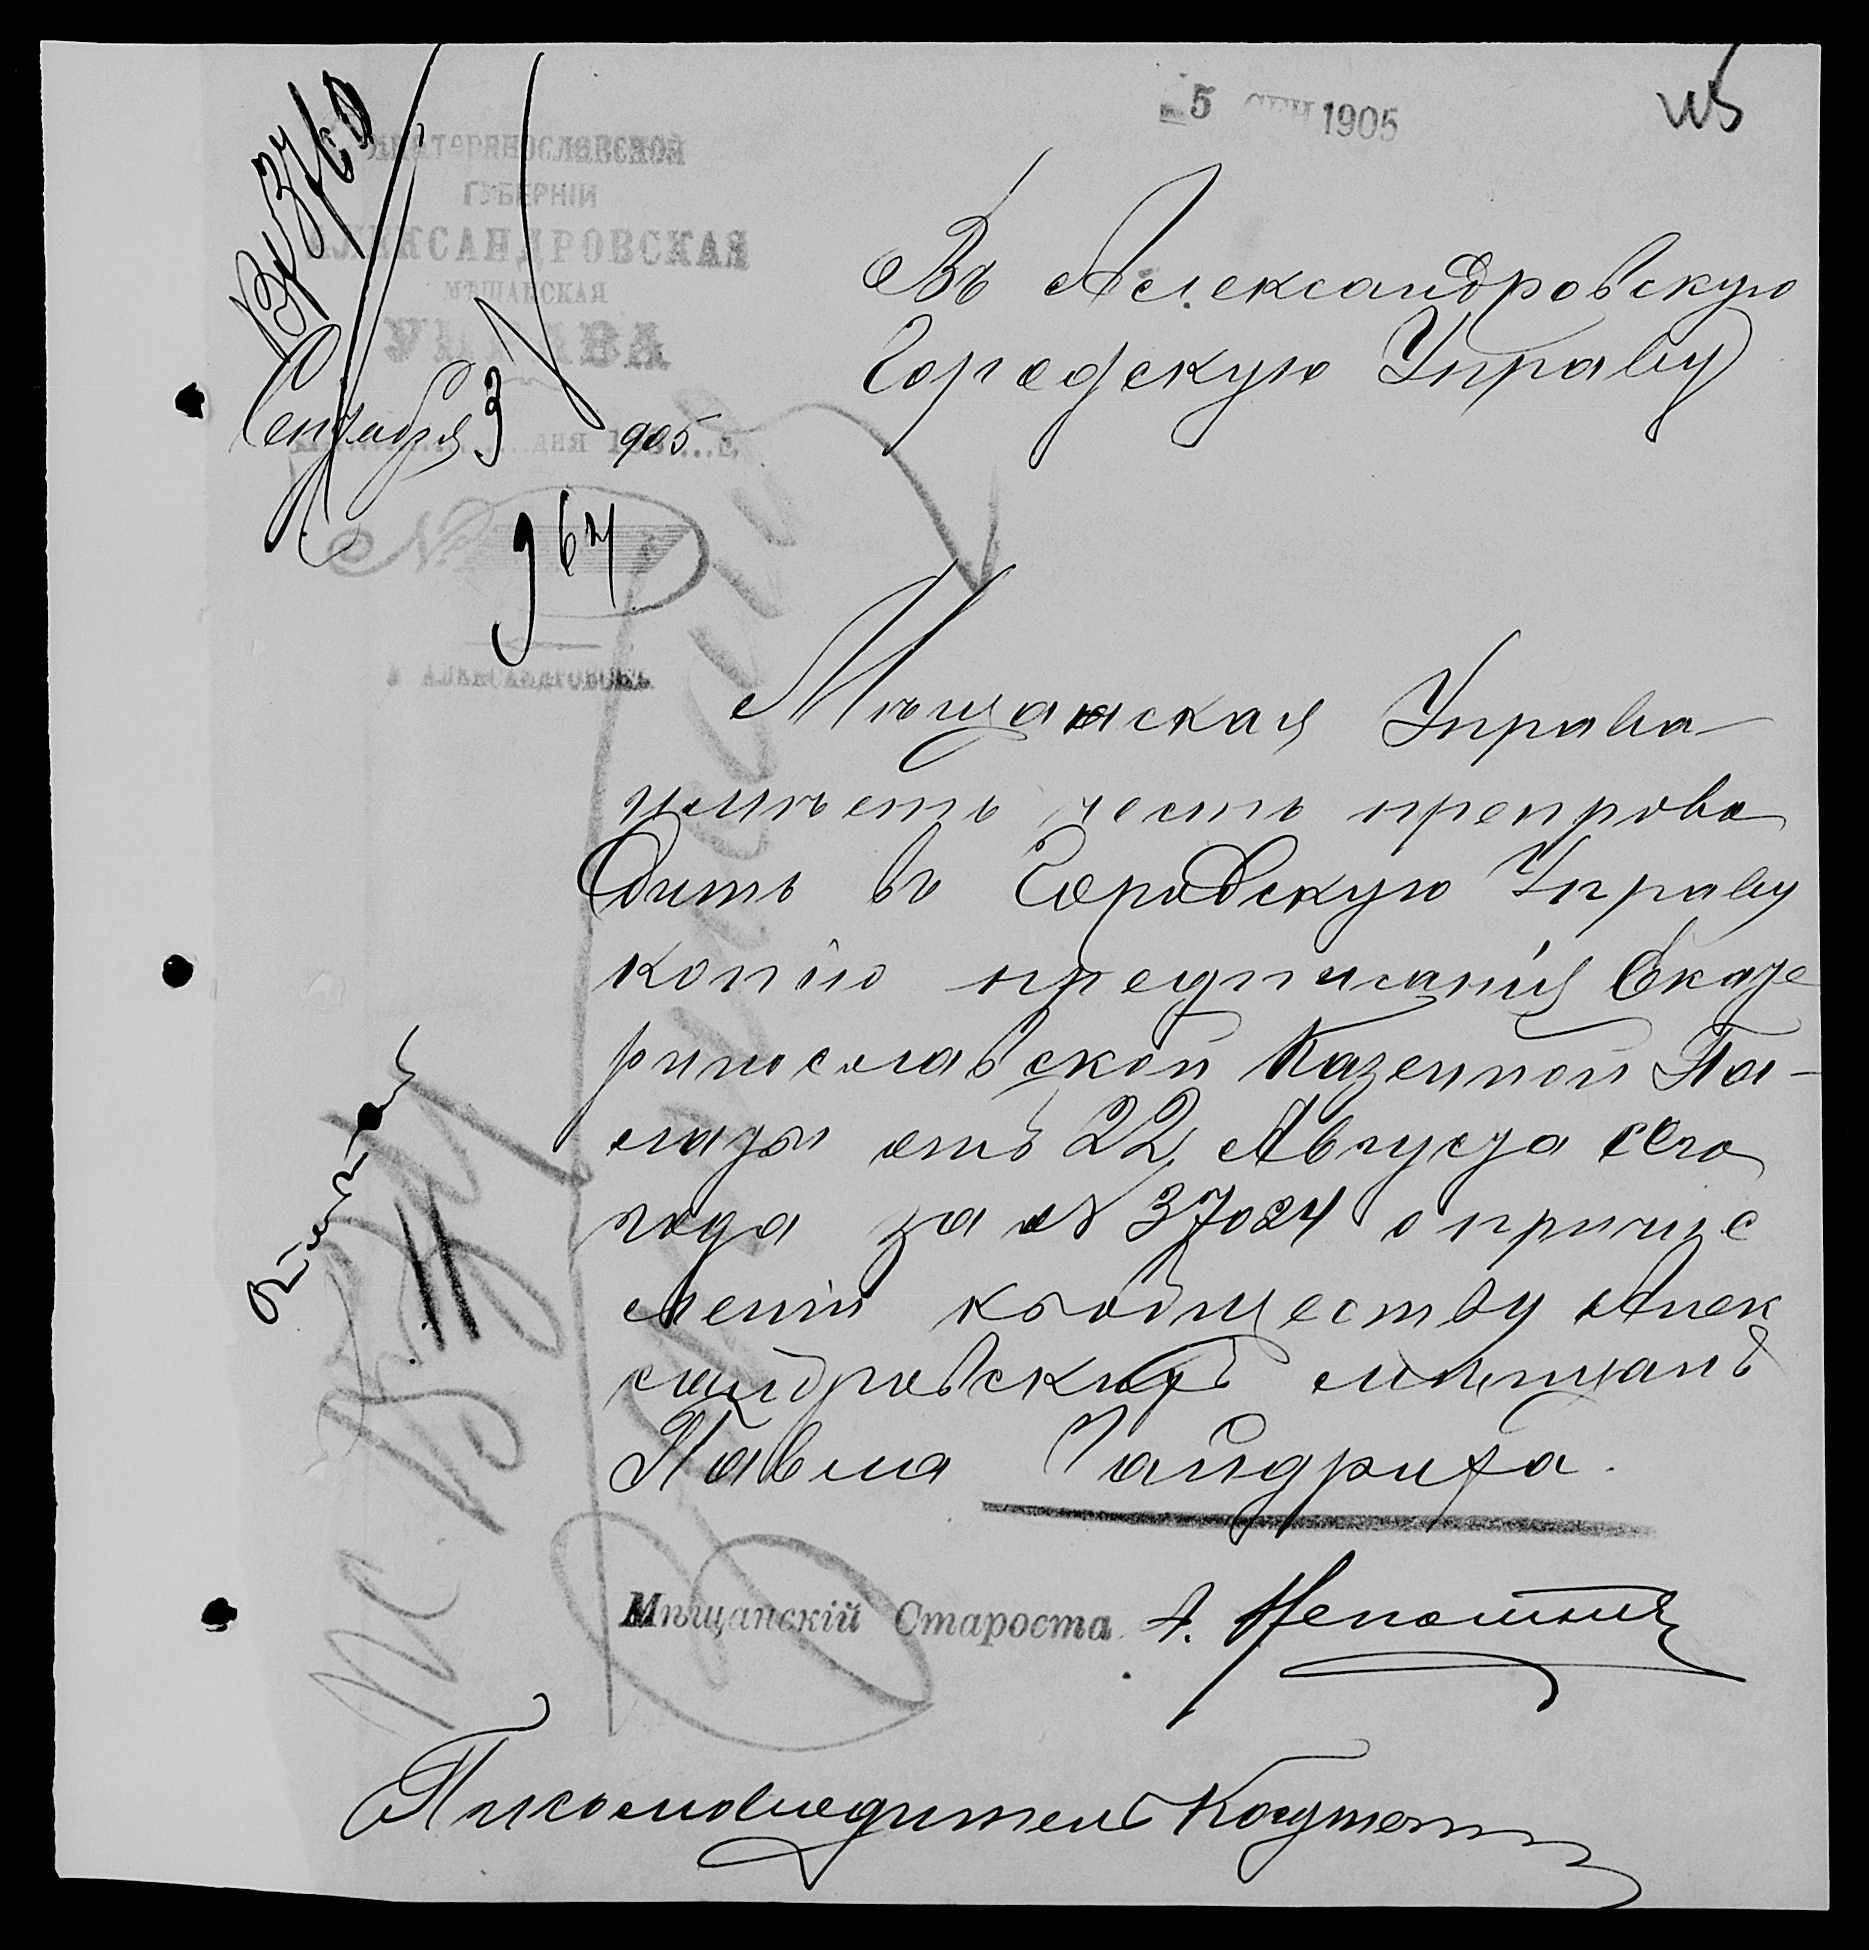 5 СЕН 1905
Вх 3760
ЕКАТЕРИНОСЛАВСКОЙ
ГУБЕРНІИ
АЛЕКСАНДРОВСКАЯ
МѢЩАНСКАЯ
УПРАВА
Сентября 3 дня 1905 г.
№ 964
г. АЛЕКСАНДРОВСКЪ
Въ Александровскую
Городскую Управу
Мѣщанская Управа
имѣетъ честь препрово
дить въ Городскую Управу
копію предписанія Екате
ринославской Казенной Па-
латы отъ 22 Августа сего
года за № 37024 о причис
леніи къ обществу Алек
сандровскихъ мѣщанъ
Павла Гайдриха.
Мѣщанскій Староста А.
Письмоводитель